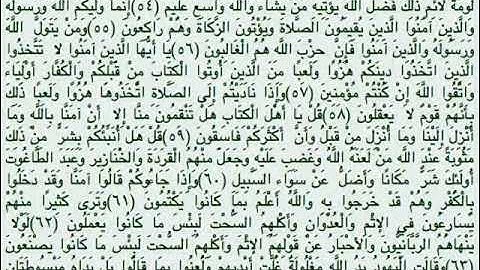 لَوْمَةَ لَائِمٍ ذَلِكَ فَضْلُ اللَّهِ يُؤْتِيهِ مَنْ يَشَاءُ وَاللَّهُ وَاسِعٌ عَلِيمٌ (٥٤)إِنَّمَا وَلِيُّكُمُ اللَّهُ وَرَسُولُهُ
وَالَّذِينَ آمَنُوا الَّذِينَ يُقِيمُونَ الصَّلَاةَ وَيُؤْتُونَ الزَّكَاةَ وَهُمْ رَاكِعُونَ (٥٥)وَمَنْ يَتَوَلَّ اللَّهَ
وَرَسُولَهُ وَالَّذِينَ آمَنُوا فَإِنَّ حِزْبَ اللَّهِ هُمُ الْغَالِبُونَ (٥٦)يَا أَيُّهَا الَّذِينَ آمَنُوا لَا تَتَّخِذُوا
الَّذِينَ اتَّخَذُوا دِينَكُمْ هُزُوًا وَلَعِبًا مِنَ الَّذِينَ أُوتُوا الْكِتَابَ مِنْ قَبْلِكُمْ وَالْكُفَّارَ أَوْلِيَاءَ
وَاتَّقُوا اللَّهَ إِنْ كُنْتُمْ مُؤْمِنِينَ (٥٧)وَإِذَا نَادَيْتُمْ إِلَى الصَّلَاةِ اتَّخَذُوهَا هُزُوًا وَلَعِبًا ذَلِكَ
بِأَنَّهُمْ قَوْمٌ لَا يَعْقِلُونَ (٥٨)قُلْ يَا أَهْلَ الْكِتَابِ هَلْ تَنْقِمُونَ مِنَّا إِلَّا أَنْ آمَنَّا بِاللَّهِ وَمَا
أُنْزِلَ إِلَيْنَا وَمَا أُنْزِلَ مِنْ قَبْلُ وَأَنَّ أَكْثَرَكُمْ فَاسِقُونَ (٥٩)قُلْ هَلْ أُنَبِّئُكُمْ بِشَرٍّ مِنْ ذَلِكَ
مَثُوبَةً عِنْدَ اللَّهِ مَنْ لَعَنَهُ اللَّهُ وَغَضِبَ عَلَيْهِ وَجَعَلَ مِنْهُمُ الْقِرَدَةَ وَالْخَنَازِيرَ وَعَبَدَ الطَّاغُوتَ
أُولَئِكَ شَرٌّ مَكَانًا وَأَضَلُّ عَنْ سَوَاءِ السَّبِيلِ (٦٠)وَإِذَا جَاءُوكُمْ قَالُوا آمَنَّا وَقَدْ دَخَلُوا
بِالْكُفْرِ وَهُمْ قَدْ خَرَجُوا بِهِ وَاللَّهُ أَعْلَمُ بِمَا كَانُوا يَكْتُمُونَ (٦١)وَتَرَى كَثِيرًا مِنْهُمْ
يُسَارِعُونَ فِي الْإِثْمِ وَالْعُدْوَانِ وَأَكْلِهِمُ السُّحْتَ لَبِئْسَ مَا كَانُوا يَعْمَلُونَ (٦٢)لَوْلَا
يَنْهَاهُمُ الرَّبَّانِيُّونَ وَالْأَحْبَارُ عَنْ قَوْلِهِمُ الْإِثْمَ وَأَكْلِهِمُ السُّحْتَ لَبِئْسَ مَا كَانُوا يَصْنَعُونَ
(٦٣)وَقَالَتِ الْيَهُودُ يَدُ اللَّهِ مَغْلُولَةٌ غُلَّتْ أَيْدِيهِمْ وَلُعِنُوا بِمَا قَالُوا بَلْ يَدَاهُ مَبْسُوطَتَانِ